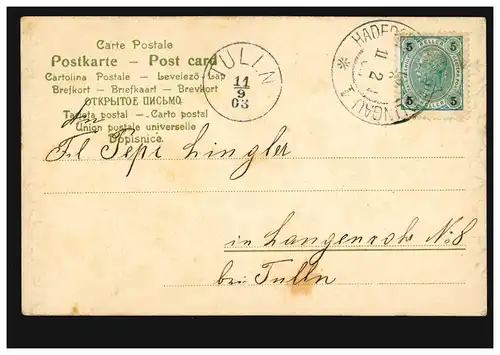 Carte Postale
Postkarte – Post card
Cartolina Postale – Levelező-Lap
Brefkort – Briefkaart – Brevkort
ОТКРЫТОЕ ПИСЬМО
Tarjeta postal – Carto postal
Union postale universelle
Dopisnice.
TULLN
11
9
03
5 5
HELLER HELLER
5 5
An
Frl Pepi Lingler
in Langenrohr No 8
bei Tulln